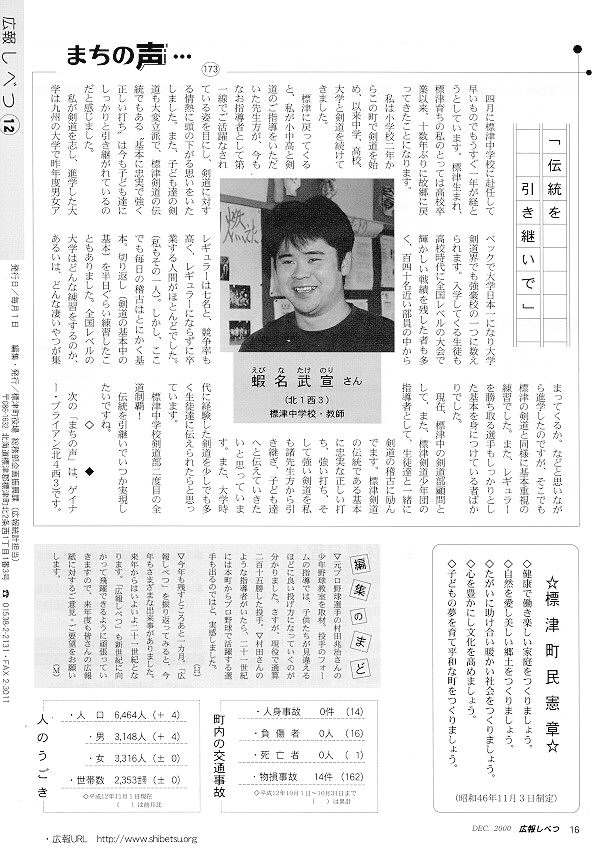 広報しべつ 12
発行日/毎月1日 編集・発行/標津町役場 総務部企画振興課(広報統計担当)
〒086-1632 北海道標津郡標津町北2条西1丁目1番3号 ☎01538-2-2131・FAX 2-3011
まちの声…
173
「伝統を
引き継いで」
四月に標津中学校に赴任して
早いものでもうすぐ一年が経と
うとしています。標津生まれ、
標津育ちの私のとっては高校卒
業以来、十数年ぶりに故郷に戻
ってきたことになります。
私は小学校二年か
らこの町で剣道を始
め、以来中学、高校、
大学と剣道を続けて
きました。
標津に戻ってくる
と、私が小中高と剣
道のご指導をいただ
いた先生方が、今も
なお指導者として第
一線でご活躍なされ
ている姿を目にし、剣道に対す
る情熱に頭の下がる思いをいた
しました。また、子ども達の剣
道も大変立派で、標津剣道の伝
統でもある〝基本に忠実で強く
正しい打ち〟は今も子ども達に
しっかりと引き継がれているの
だと感じました。
私が剣道を志し、進学した大
学は九州の大学で昨年度男女ア
ベックで大学日本一になり大学
剣道界でも強豪校の一つに数え
られます。入学してくる生徒も
高校時代に全国レベルの大会で
輝かしい戦績を残した者も多
く、百四十名近い部員の中から
レギュラーは七名と、競争率も
高く、レギュラーにならずに卒
業する人間がほとんどでした。
(私もその一人)。しかし、ここ
でも毎日の稽古はとにかく基
本、切り返し(剣道の基本中の
基本)を半日ぐらい練習したこ
ともありました。全国レベルの
大学はどんな練習をするのか、
あるいは、どんな凄いやつが集
燃
えび な たけ のり
蝦名武宣 さん
(北1西3)
標津中学校・教師
まってくるか、などと思いなが
ら進学したのですが、そこでも
標津の剣道と同様に基本重視の
練習でした。また、レギュラー
を勝ち取る選手もしっかりとし
た基本を身につけている者ばか
りでした。
現在、標津中の剣道部顧問と
して、また、標津剣道少年団の
指導者として、生徒達と一緒に
剣道の稽古に励ん
でます。標津剣道
の伝統である基本
に忠実な正しい打
ち、強い打ち、そ
して強い剣道を私
も諸先生方から引
き継ぎ、子ども達
へと伝えていきた
いと思っていま
す。また、大学時
代に経験した剣道を少しでも多
く生徒達に伝えられたらと思っ
ています。
標津中学校剣道部二度目の全
道制覇!
伝統を引継いでいつか実現し
たいですね。
◇ ◆
次の「まちの声」は、ゲイナ
ー・ブライアン(北4西3)です。
☆標津町民憲章☆
◇健康で働き楽しい家庭をつくりましょう。
◇自然を愛し美しい郷土をつくりましょう。
◇たがいに助け合い暖かい社会をつくりましょう。
◇心を豊かにし文化を高めましょう。
◇子どもの夢を育て平和な町をつくりましょう。
(昭和46年11月3日制定)
編集のまど
▽元プロ野球選手の村田兆治さんの
少年野球教室を取材。投手のフォー
ムの指導では、子供たちが見違える
ほどに良い投げ方になっていくのが
分かりました。さすが、現役で通算
二百十五勝した投手。▽村田さんの
ような指導者がいたら、二十一世紀
には本町からプロ野球で活躍する選
手も出るのではと、実感しました。
▽今年も残すところあと一カ月。「広
報しべつ」を振り返ってみると、今
年もさまざまな出来事がありました。
来年からはいよいよ二十一世紀とな
ります。「広報しべつ」も新世紀に向
かって飛躍できるように頑張ってい
きますので、来年度も皆さんの広報
紙に対するご意見・ご要望をお願い
します。 (M)
町内の交通事故
・人身事故 0件 (14)
・負傷者 0人 (16)
・死亡者 0人 (1)
・物損事故 14件 (162)
◇平成12年10月1日〜10月31日まで
( )は累計
人のうごき
・人口 6,464人(+4)
・男 3,148人(+4)
・女 3,316人(±0)
・世帯数 2,353世帯(±0)
◇平成12年11月1日現在
( )は前月比
・広報URL http://www.shibetsu.org/
DEC. 2000 広報しべつ 16